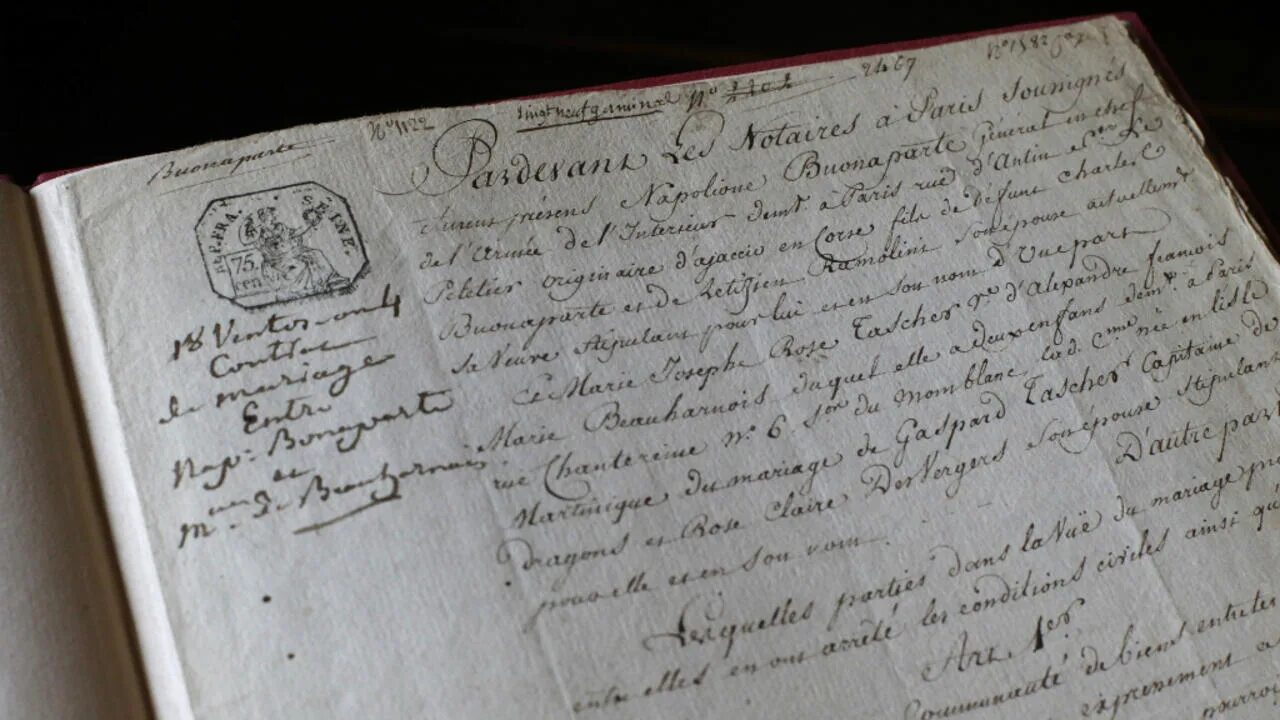 Buonaparte
N° 1122
vingt neuf germinal
N°
2467
N° 1582
REP. FRA.
SEINE.
75.
cen
18 Ventose an 4
Contrat
de mariage
Entre
Nap. Bonaparte
et
M. de Beauharnais
Pardevant Les Notaires à Paris Soussignés
furent présens Napolione Buonaparte Général en chef
de l'Armée de l'Interieur demt. à Paris rue d'Antin Son Le
Peletier originaire d'ajaccio en Corse fils de défunt Charles
Buonaparte et de Letizien Ramolini Son épouse actuellemt
sa Veuve Stipulant pour lui et en son nom d'Une part
Et Marie Josephe Rose Tascher Ve d'Alexandre francois
Marie Beauharnois duquel elle a deux enfans demt. à Paris
rue Chantereine n° 6. Son du Momblanc, lad. Cenne née en l'isle
Martinique du mariage de Gaspard Tascher Capitaine de
Dragons et Rose Claire Des Vergers Son épouse Stipulant
pour elle et en son nom. D'autre part
Lesquelles parties dans la Vuë du mariage
entre elles en ont arrêté les conditions civiles ainsi qu
Art. 1er
Communauté de biens entre
expressement a